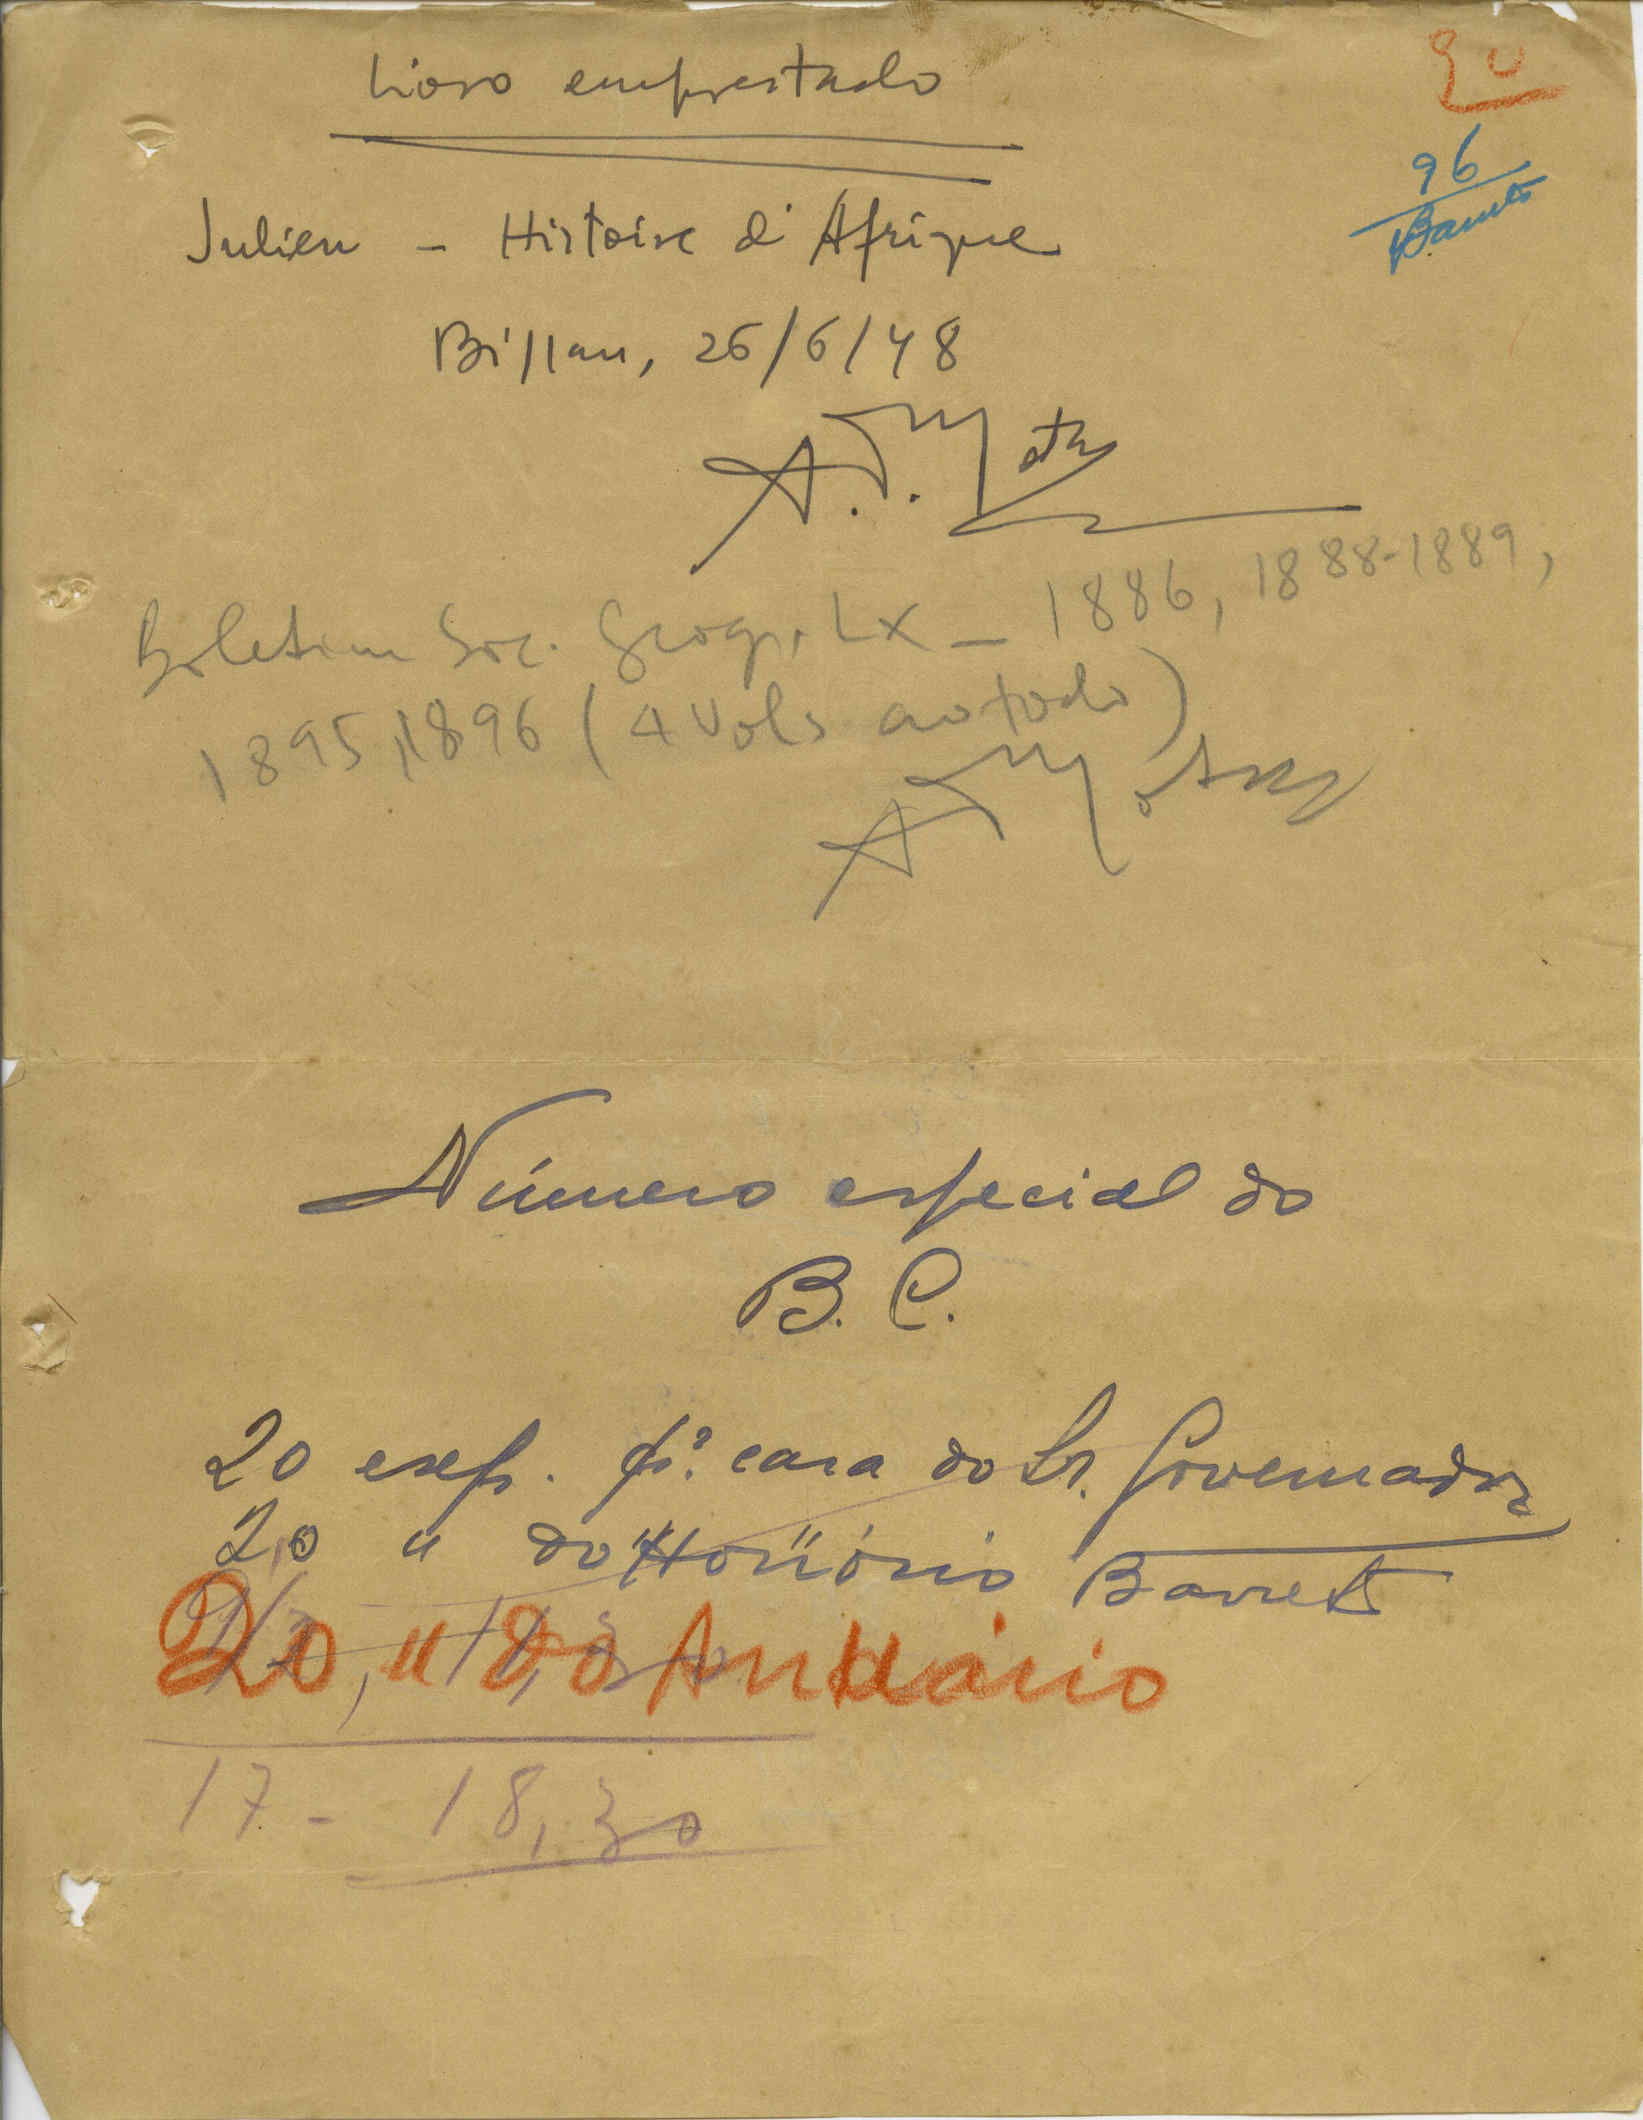 Livro emprestado
90
96
Barreto
Julien - Histoire d'Afrique
Bissau, 26/6/48
A.T. Mota
Boletim Soc. Geogr. Lx - 1886, 1888-1889,
1895, 1896 (4 vols ao todo)
A T Mota
Número especial do
B. C.
20 exeps. pª. casa do Sr. Governador
20 " do "Honório Barreto
20 " do Anuário
17 - 18,30